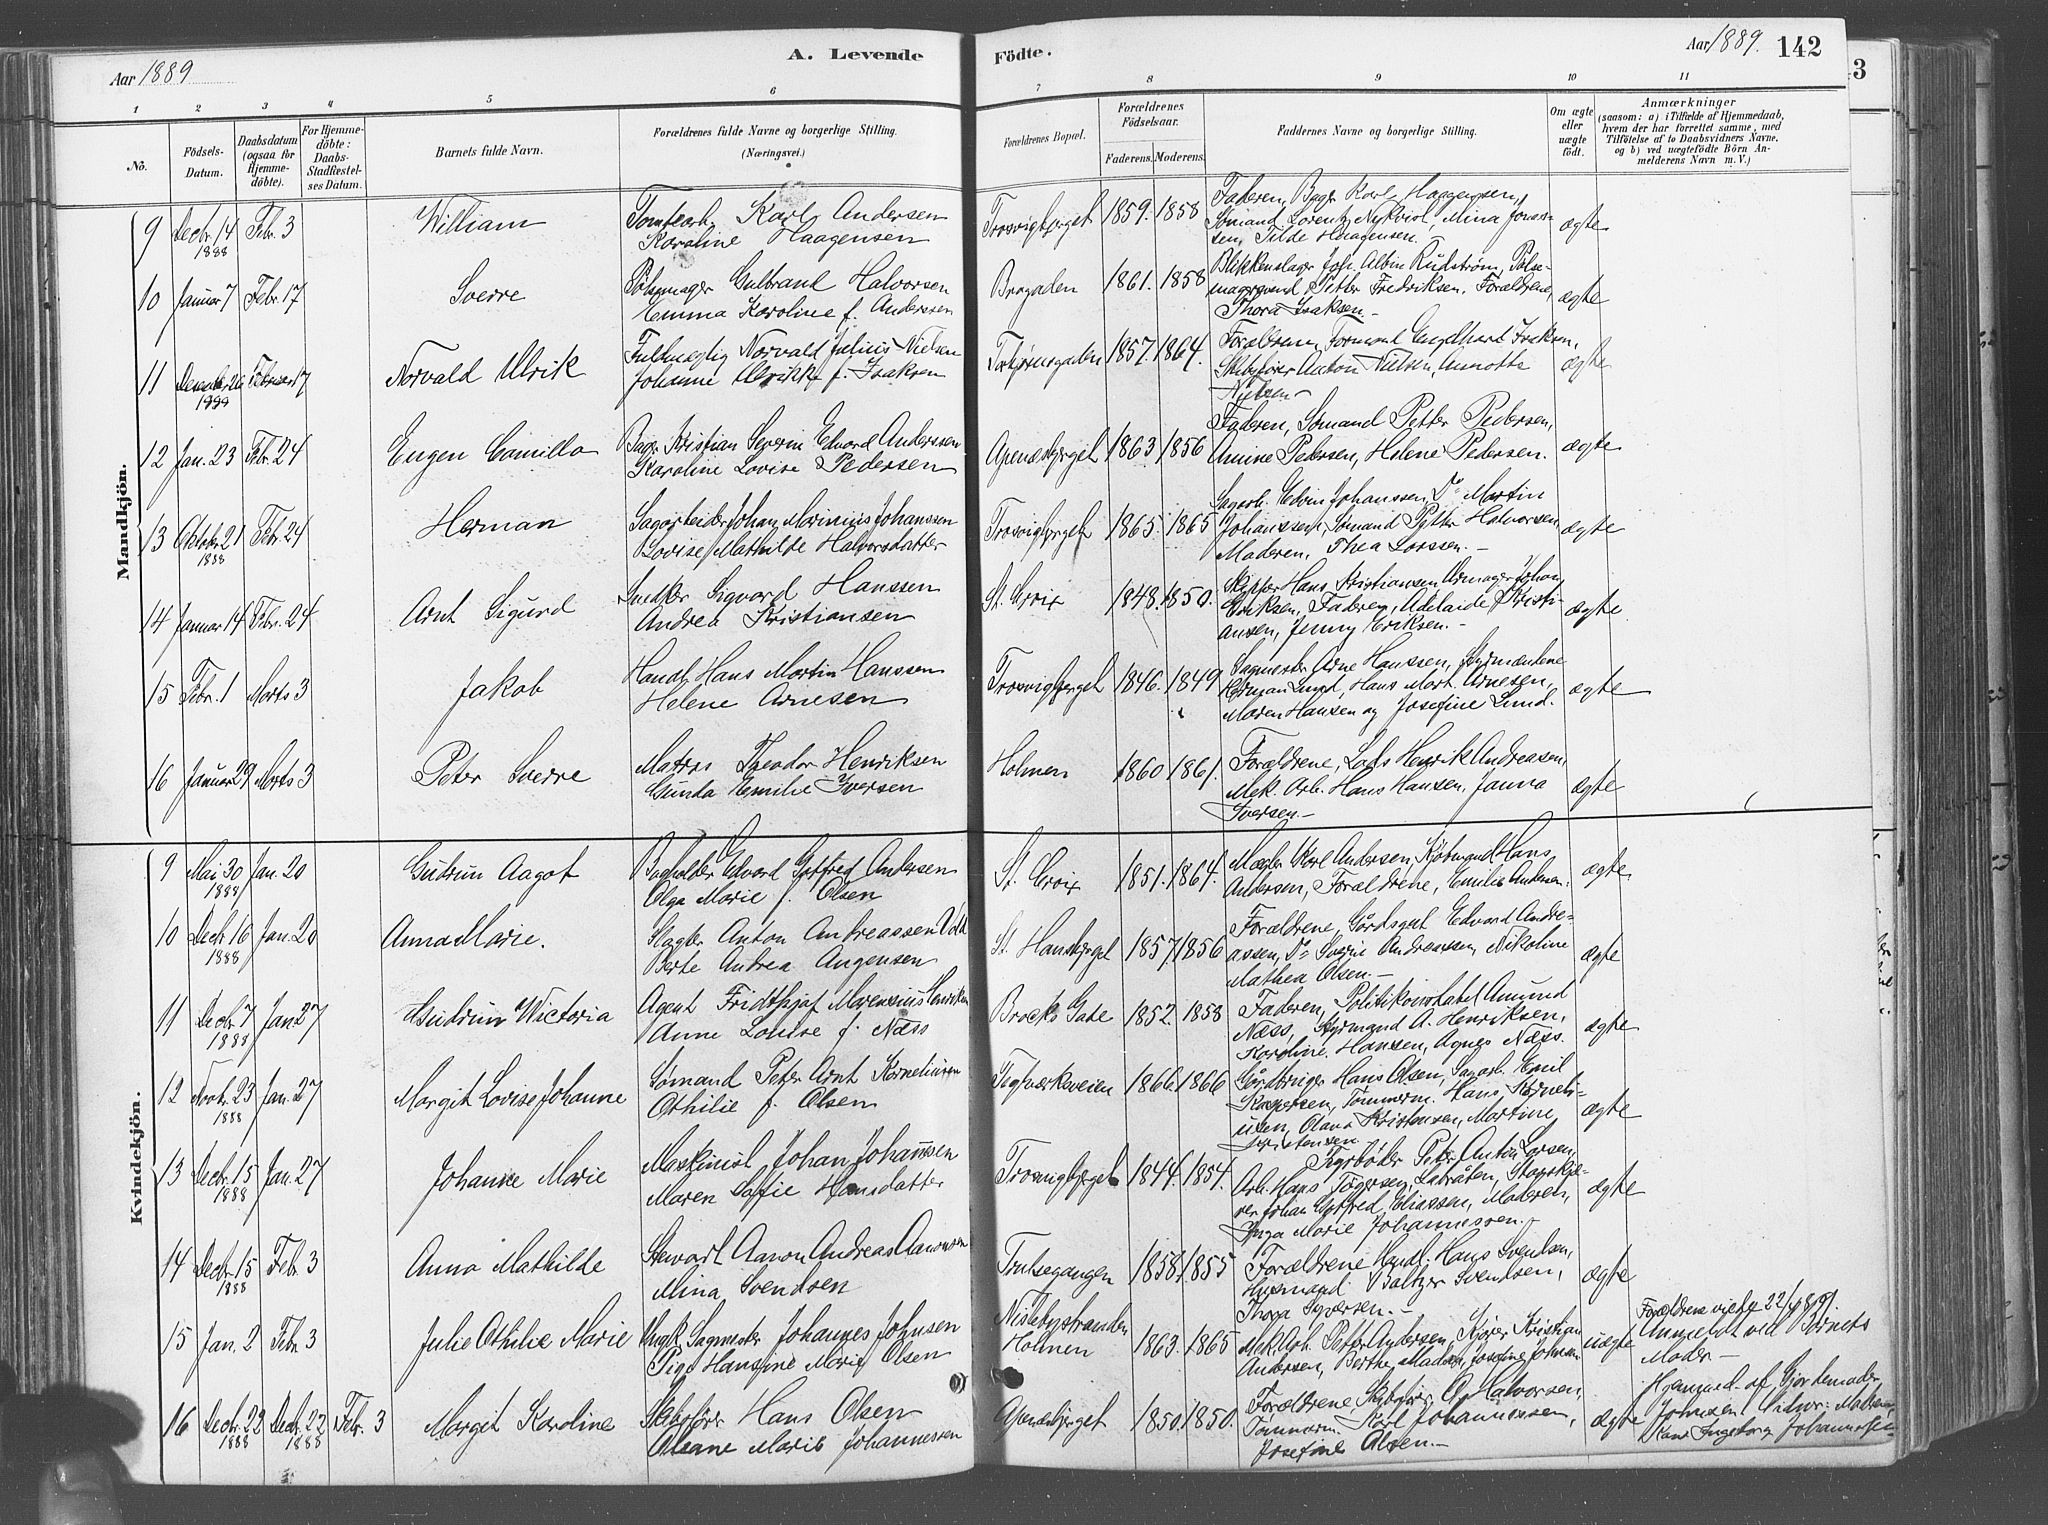 Aar 1889
A. Levende
Födte.
Aar 1889.
142
1 2 3 4 5 6 7 8 9 10 11
No.
Födsels-Datum.
Daabsdatum (ogsaa for Hjemme-döbte).
For Hjemme-döbte: Daabs-Stadfæstel-ses Datum.
Barnets fulde Navn.
Forældrenes fulde Navne og borgerlige Stilling.
(Næringsvei.)
Forældrenes Bopæl.
Forældrenes Födselsaar.
Faderens. Moderens.
Faddernes Navne og borgerlige Stilling.
Om ægte eller uægte födt.
Anmærkninger
(saasom: a) i Tilfælde af Hjemmedaab,
hvem der har forrettet samme, med
Tilföielse af to Daabsvidners Navne.
og b) ved uægtefödte Börn An-
melderens Navn m. V.)
Mandkjön.
9 Decbr. 14 1888 Febr. 3 William Karl Andersen
Karoline Haagensen
Trosvigbjerget 1859. 1858
Faderen, Bager Karl Haagensen,
Sömand Lorentz Nykvist, Mina Jonas-
sen, Tilde Haagensen.
ægte
10 Januar 7 Febr. 17 Sverre Pölsemager Gulbrand Halvorsen
Emma Karoline f. Anderssen
Brogaden 1861. 1858
Blikkenslager Joh. Albin Rudström, Pölse-
magersvend Petter Fredriksen. Forældrene,
Thora Isaksen.-
ægte
11 December 26 1888 Februar 17 Norvald Ulrik Fuldmægtig Norvald Julius Nielsen
Johanne Ulrikke f. Isaksen
1857. 1864.
Forældrene, Formand Engelhart Isaksen,
Skibsförer Anton Nielsen, Annette
Nielsen-
ægte
12 Jan. 23 Febr. 24 Eugen Camillo Bager Kristian Severin Edvard Anderssen
Karoline Lovise Pedersen
Apenæsbjerget 1863 1856
Faderen, Sömand Petter Pedersen,
Amine Pedersen, Helene Pedersen.
ægte
13 Oktober 21 1888 Febr. 24 Herman Sagarbeider Johan Marinius Johanssen
Lovise Mathilde Halvorsdatter
Trosvigbjerget 1865. 1865
Sagarb. Edvin Johanssen, Do Martin
Johanssen, Sömand Petter Halvorsen,
Moderen, Thea Larssen.-
ægte
14 Januar 14 Febr. 24 Arnt Sigurd Snedker Sigvard Hanssen
Andrea Kristiansen
St. Croix 1848. 1850.
Skipper Hans Kristiansen, Urmager Johan
Eriksen, Faderen, Adelaide Kristi-
ansen, Jenny Eriksen.-
ægte
15 Febr. 1 Marts 3 Jakob Handl. Hans Martin Hanssen
Helene Arnesen
Trosvigbjerget 1846. 1849
Sagmester Arne Hanssen, Styrmændene
Herman Lund, Hans Mart. Arnesen,
Maren Hansen og Josefine Lund.
ægte
16 Januar 29 Marts 3 Peter Sverre Matros Theodor Henriksen
Gunda Emilie Iversen
Holmen 1860 1861.
Forældrene, Lods Henrik Andreasen,
Mek. Arb. Hans Hansen, Janna
Iversen.-
ægte
Kvindekjön.
9 Mai 30 1888 Jan. 20 Gudrun Aagot Bogholder Edvard Gotfred Andersen
Olga Marie f. Olsen
St. Croix 1851. 1864.
Mægler Karl Andersen, Kjöbmand Hans
Andersen, Forældrene, Emilie Andersen.
ægte
10 Decbr. 16 1888 Jan. 20 Anna Marie. Slagter Anton Andreassen
Berte Andrea Augensen
St. Hansbjerget 1857. 1856
Forældrene, Gårdsgut Edvard Andre-
assen, Do Andreassen, Nikoline
Mathea Olsen.-
ægte
11 Decbr. 7 1888 Jan. 27 Gudrun Wictoria Agent Fridthjof Marensius Henriksen
Anne Louise f. Næss
Brocks Gade 1852. 1858
Faderen, Politikonstabel Amund
Næss, Styrmand A. Henriksen,
Karoline Hansen, Agnes Næss.
ægte
12 Novbr. 23 1888 Jan. 27 Margit Lovise Johanne Sömand Peter Arnt Korneliusen
Othilie f. Olsen
Teglværksveien 1866. 1866
Gårdbruger Hans Olsen, Sagarb. Emil
Kaspersen, Tömmerm. Hans Korneli-
usen, Olava Kristensen, Martine
Kristensen.
ægte
13 Decbr. 15 1888 Jan. 27 Johanne Marie Maskinist Johan Johannsen
Maren Sofie Hansdatter
Trosvigbjerget 1844. 1854.
Fyrböder Peter Anton Larsen,
Arb. Hans Togersen, Labråten,
Johan Gotfred Eliassen, Moderen,
Inga Marie Johannessen.-
ægte
14 Decbr. 15 1888 Febr. 3 Anna Mathilde Stewart Aaron Andreas Aaronsen
Mina Svendsen
1858. 1855
Forældrene, Handl. Hans Svendsen,
Husmand Baltzer Svendsen,
Thora Syversen.-
ægte
15 Jan. 2 Febr. 3 Julie Othilie Marie Ungk. Sagmester Johannes Johnsen
Pige Hansine Marie Olsen
Nislebystranden
Holmen 1863. 1865
Mek. Arb. Petter Andersen, Kjörer Kristian
Andersen, Berthe Madsen, Josefine Johnsen
uægte
Forældrene viede 22/4 1889.
Anmeldt ved Barnets
Moder-
16 Decbr. 22 1888 Decbr. 22 1888 Febr. 3 Margit Karoline Skibsförer Hans Olsen
Oleane Marie Johannessen
Apenæsbjerget 1850. 1850.
Forældrene, Skibsförer O. Halvorsen,
Tömmerm. Karl Johannessen,
Josefine Olsen.-
ægte
Hjemmed. af Gjordemoder
Johnsen. Vidner: Maren
Ingeborg Johannessen